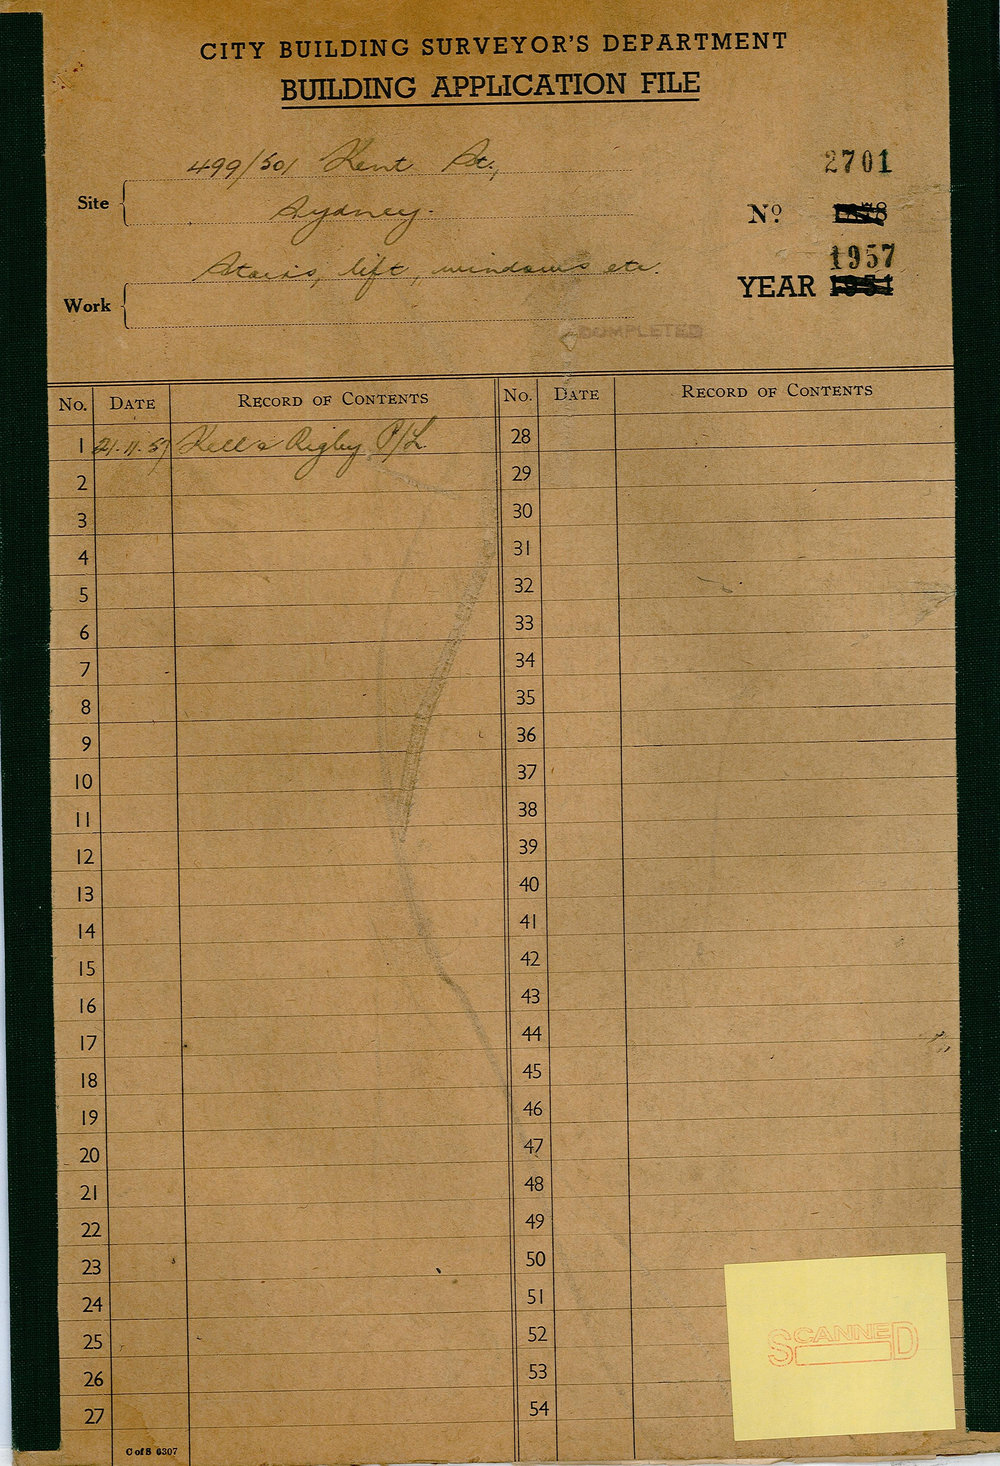 CITY BUILDING SURVEYOR'S DEPARTMENT
BUILDING APPLICATION FILE
499/501 Kent St.,
2701
Site
Sydney.
No 
Stairs, lift, windows etc.
1957
YEAR 1951
Work
COMPLETED
No. DATE RECORD OF CONTENTS No. DATE RECORD OF CONTENTS
1 21.11.57 Kell & Rigby P/L 28
2 29
3 30
4 31
5 32
6 33
7 34
8 35
9 36
10 37
11 38
12 39
13 40
14 41
15 42
16 43
17 44
18 45
19 46
20 47
21 48
22 49
23 50
24 51
25 52
26 53
27 54
SCANNED
C of S 6307